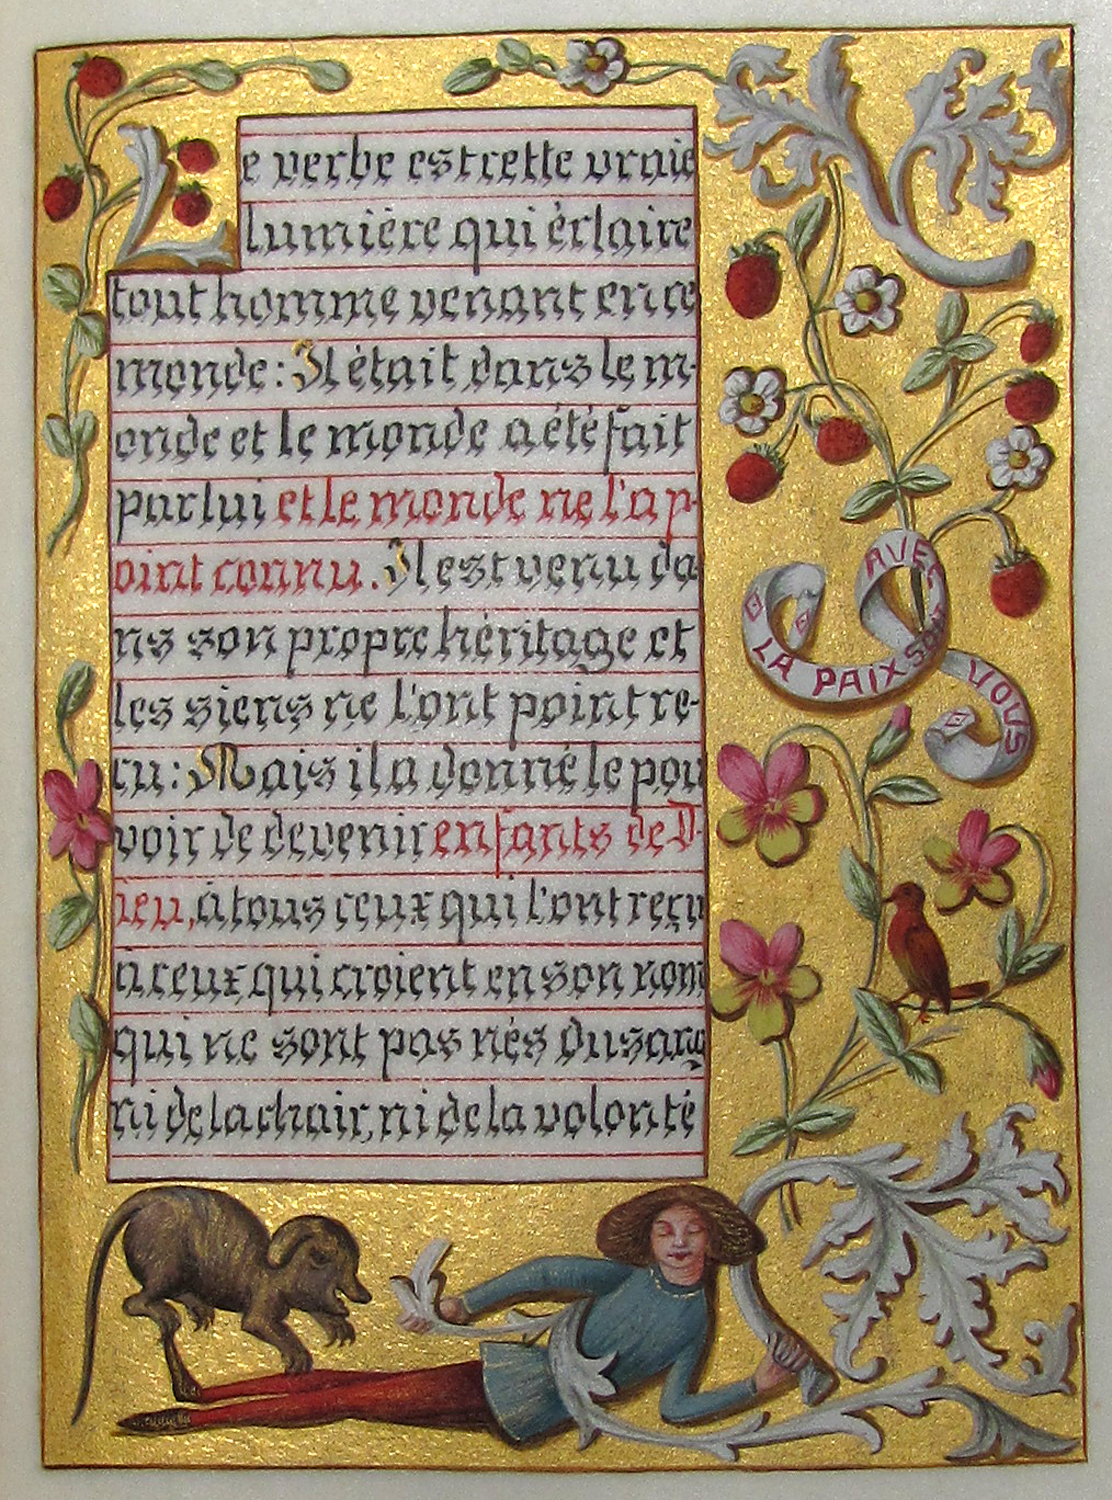 Le verbe est cette vraie
lumière qui éclaire
tout homme venant en ce
monde: Il était dans le m-
onde et le monde a été fait
par lui et le monde ne l'a p-
oint connu. Il est venu da
ns son propre héritage et
les siens ne l'ont point re-
çu: Mais il a donné le pou
voir de devenir enfants de D-
ieu, à tous ceux qui l'ont reçu
à ceux qui croient en son nom
qui ne sont pas nés du sang
ni de la chair, ni de la volonté
LA PAIX SOIT AVEC VOUS